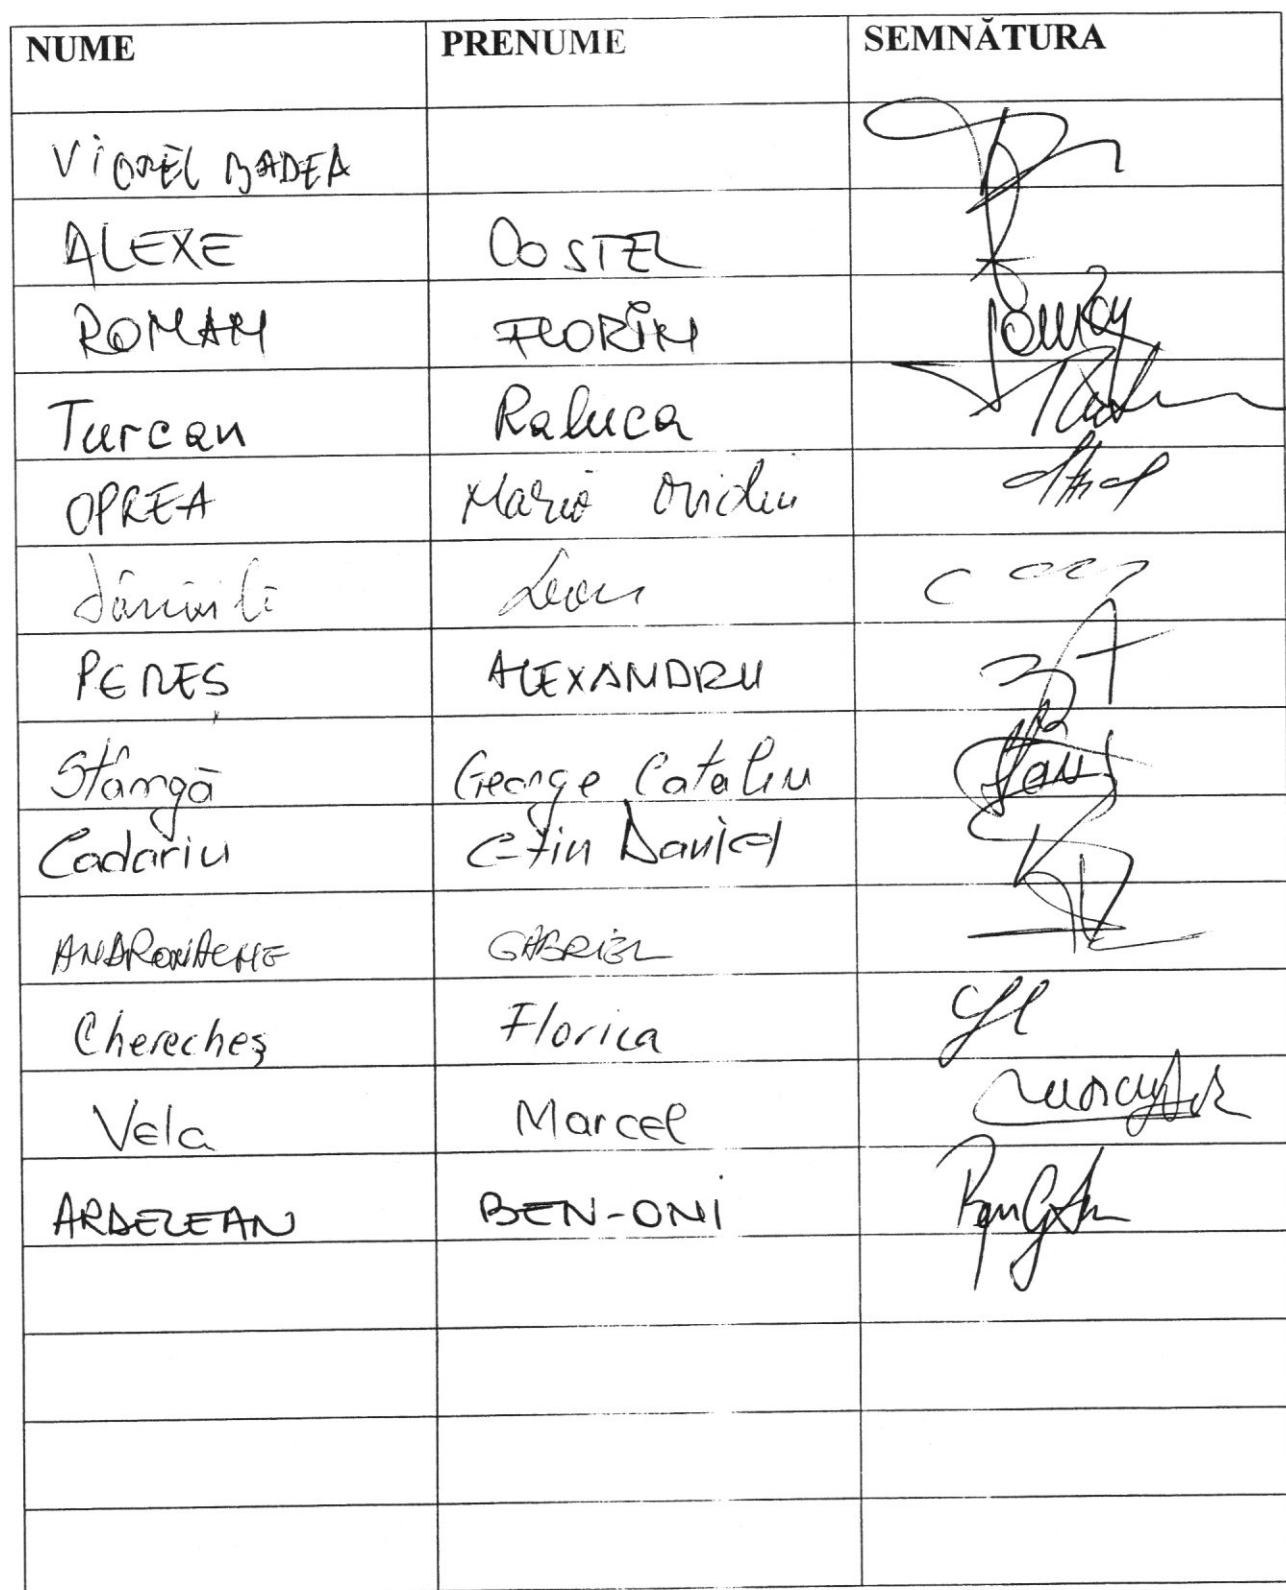 NUME PRENUME SEMNĂTURA
VIOREL BADEA
ALEXE COSTEL
ROMAN FLORIN
Turcan Raluca
OPREA Mario Ovidiu
Dănăilă Leon
PEREȘ ALEXANDRU
Stângă George Catalin
Cadariu C-tin Daniel
ANDRONACHE GABRIEL
Cherecheș Florica
Vela Marcel
ARDELEAN BEN-ONI